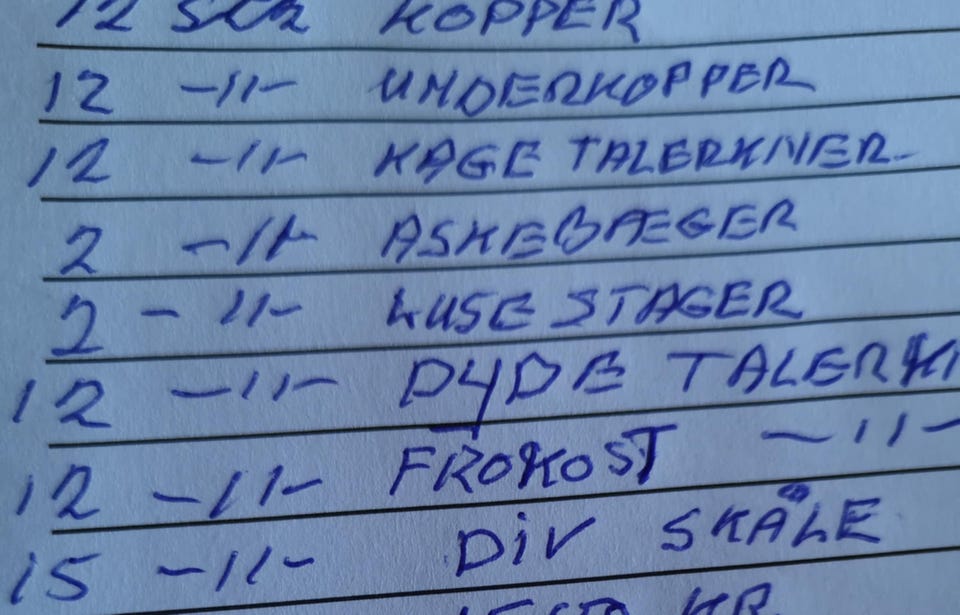 12 STK KOPPER
12 -11- UNDERKOPPER
12 -11- KAGE TALERKNER
2 -11- ASKEBÆGER
2 -11- LUSE STAGER
12 -11- DYDE TALERKN
12 -11- FROKOST -11-
15 -11- DiV SKÅLE
KR